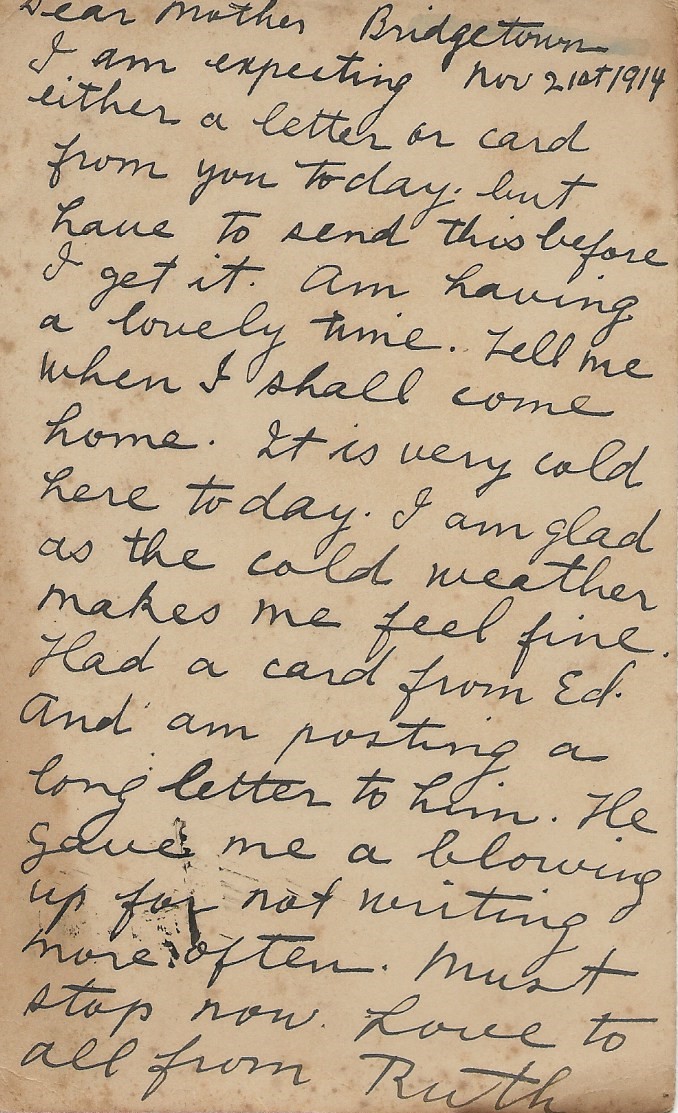 Dear Mother Bridgetown
Nov 21st 1914
I am expecting
either a letter or card
from you today. but
have to send this before
I get it. Am having
a lovely time. Tell me
when I shall come
home. It is very cold
here today. I am glad
as the cold weather
makes me feel fine.
Had a card from Ed.
And am posting a
long letter to him. He
gave me a blowing
up for not writing
more often. Must
stop now. Love to
all from Ruth